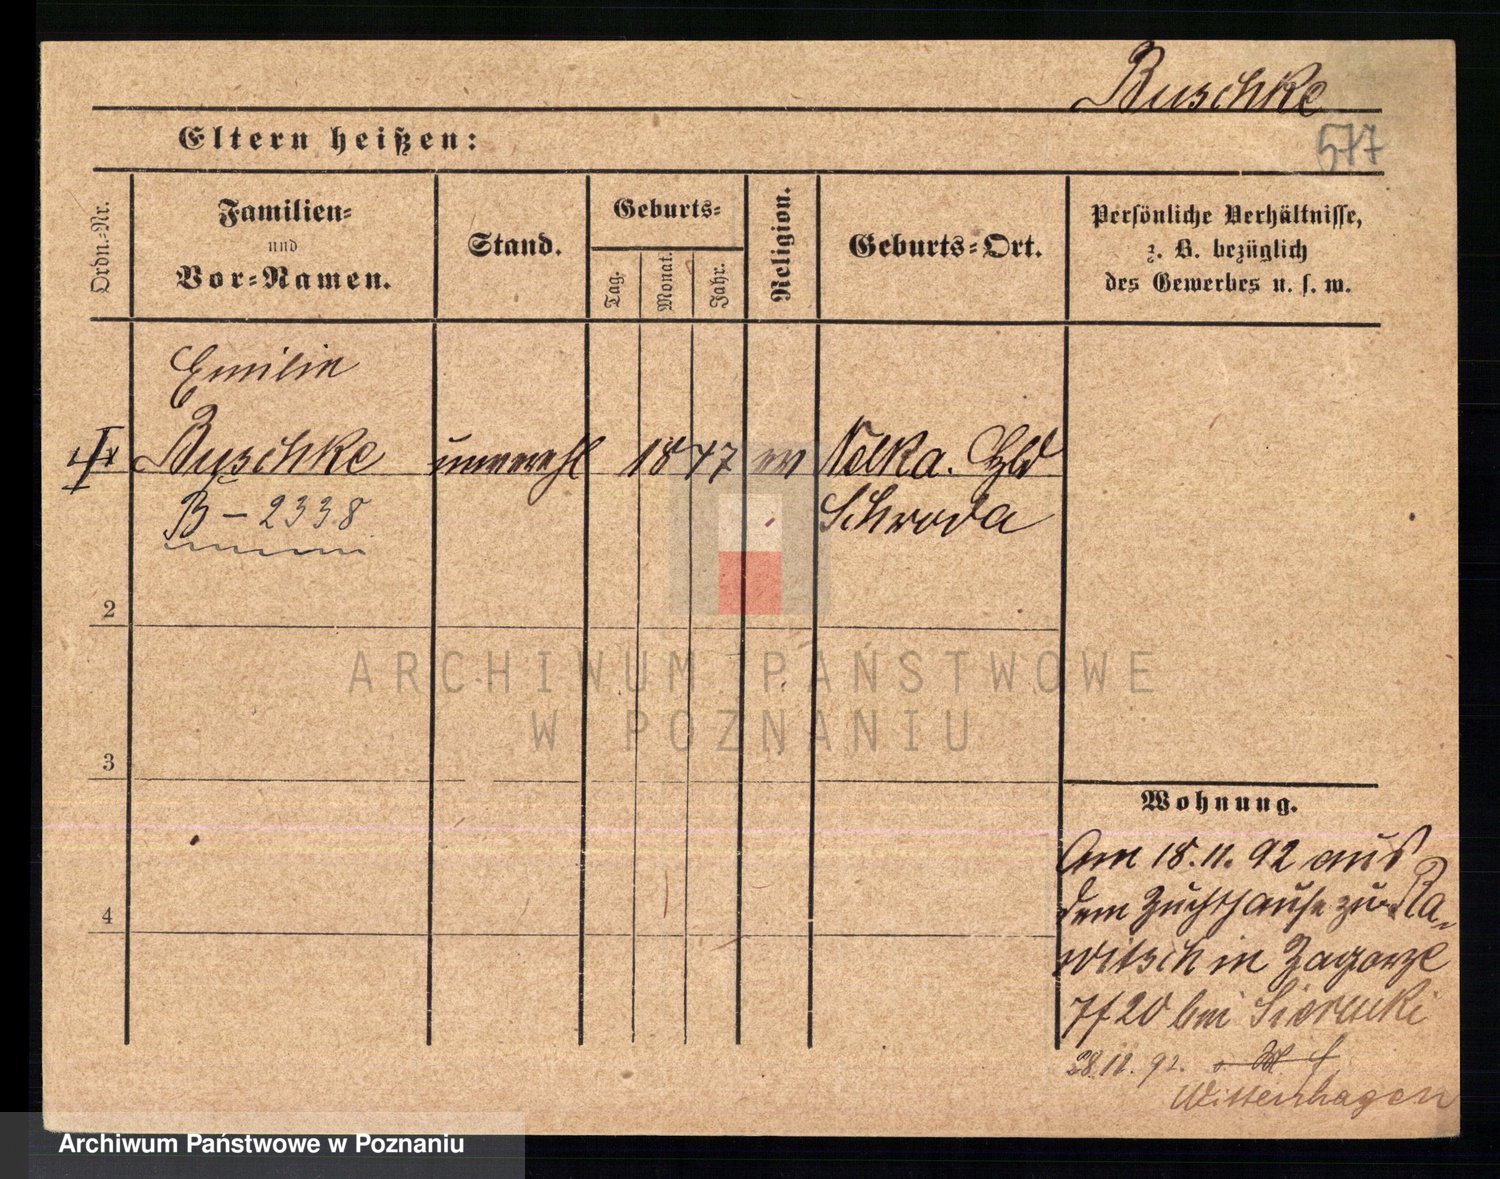 Buschke
577
Eltern heißen:
Ordn.-Nr.
Familien-
und
Vor-Namen.
Stand.
Geburts-
Tag.
Monat.
Jahr.
Religion.
Geburts-Ort.
Persönliche Verhältnisse,
z. B. bezüglich
des Gewerbes u. s. w.
Emilie
Buschke unverehl 1847 ev Nekla.
Schroda
B - 2338
2
3
4
ARCHIWUM PAŃSTWOWE
W POZNANIU
Wohnung.
Am 18.11.92 aus
dem Zuchthause zu Ra-
witsch in Zagorze
7f20 bei Sierucki
28.12.92.
Wittenhagen
Archiwum Państwowe w Poznaniu